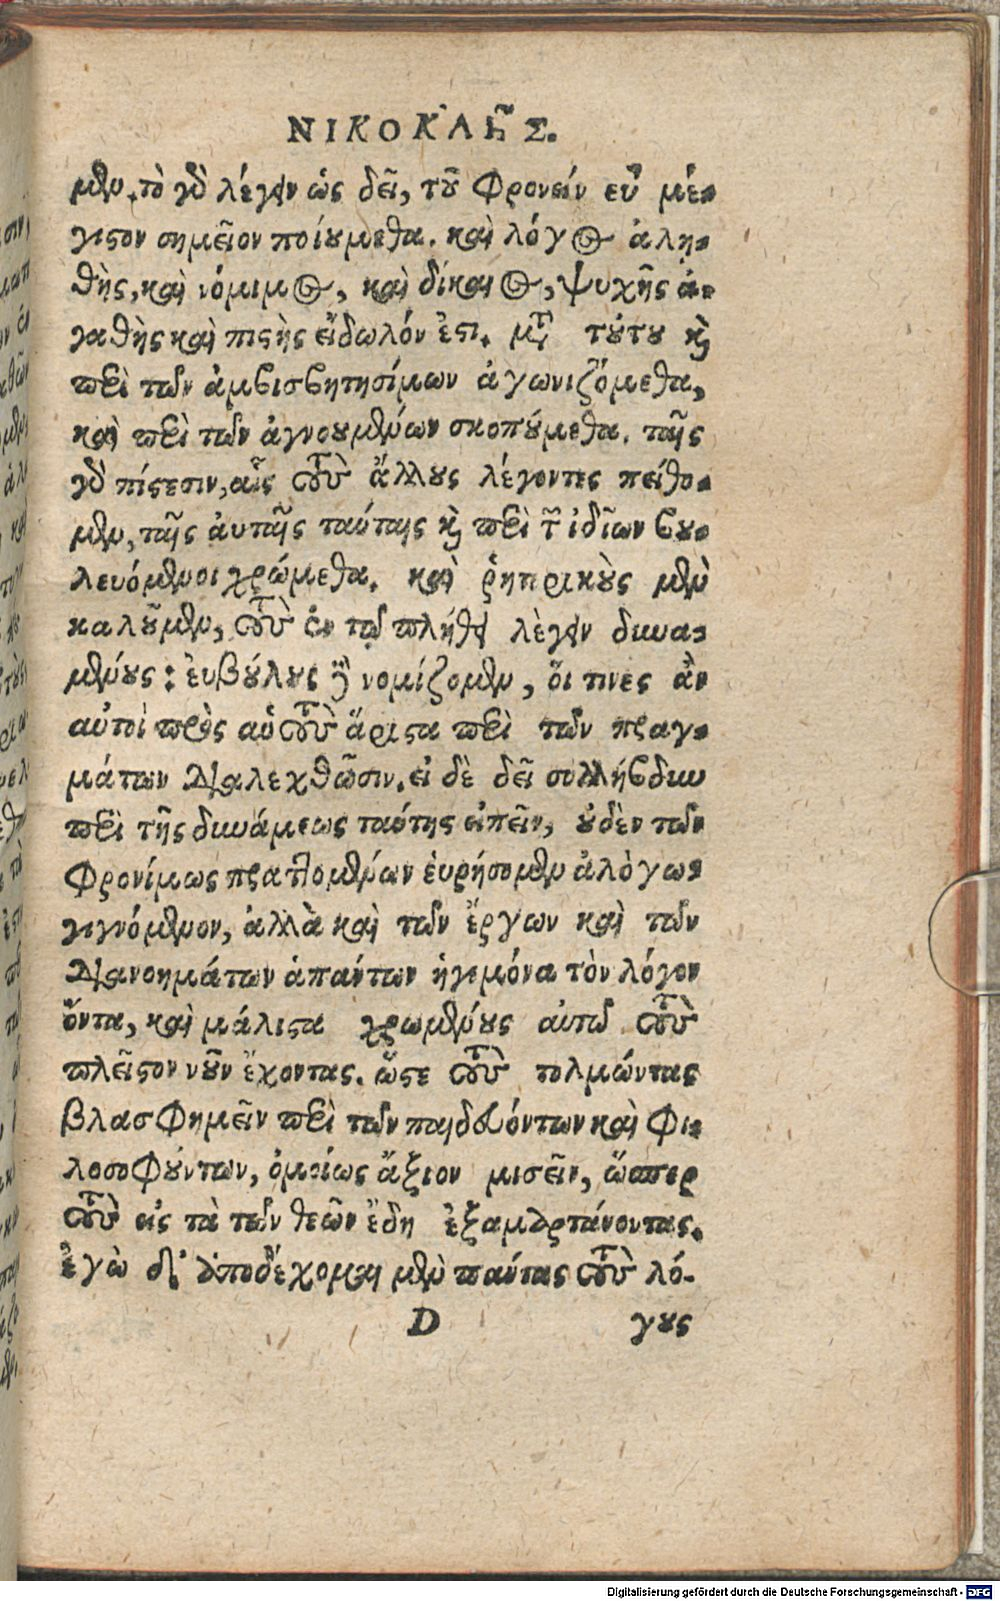 ΝΙΚΟΚΛῆΣ.
μεν. τὸ γὸ λέγειν ὡς δεῖ, τοῦ φρονεῖν εὖ μέ-
γιστον σημεῖον ποιούμεθα. καὶ λόγος ἀλη-
θὴς, καὶ νόμιμος, καὶ δίκαιος, ψυχῆς ἀ-
γαθῆς καὶ πιστῆς εἴδωλόν ἐστι. μετὰ τούτου καὶ
περὶ τῶν ἀμφισβητησίμων ἀγωνιζόμεθα,
καὶ περὶ τῶν ἀγνοουμένων σκοπούμεθα. ταῖς
γὸ πίστεσιν, αἷς τοὺς ἄλλους λέγοντες πείθο-
μεν, ταῖς ἀυταῖς ταύταις καὶ περὶ τῶν ἰδίων βου-
λευόμενοι χρώμεθα. καὶ ῥητορικοὺς μὲν
καλοῦμεν, τοὺς ἐν τῷ πλήθει λέγειν δυνα-
μένους: ἐυβούλους δὲ νομίζομεν, οἵ τινες ἂν
αὐτοὶ πρὸς αὑτοὺς ἄριστα περὶ τῶν πραγ-
μάτων διαλεχθῶσιν. εἰ δὲ δεῖ συλλήβδην
περὶ τῆς δυνάμεως ταύτης εἰπεῖν, οὐδὲν τῶν
φρονίμως πραττομένων ἑυρήσομεν ἀλόγως
γιγνόμενον, ἀλλὰ καὶ τῶν ἔργων καὶ τῶν
διανοημάτων ἁπάντων ἡγεμόνα τὸν λόγον
ὄντα, καὶ μάλιστα χρωμένους αὐτῷ τοὺς
πλεῖστον νοῦν ἔχοντας. ὥστε τοὺς τολμῶντας
βλασφημεῖν περὶ τῶν παιδευόντων καὶ φι-
λοσοφούντων, ὁμοίως ἄξιον μισεῖν, ὥσπερ
τοὺς εἰς τὰ τῶν θεῶν ἕδη ἐξαμαρτάνοντας.
ἐγὼ δ' ἀποδέχομαι μὲν πάντας τοὺς λό-
D γους
Digitalisierung gefördert durch die Deutsche Forschungsgemeinschaft - DFG